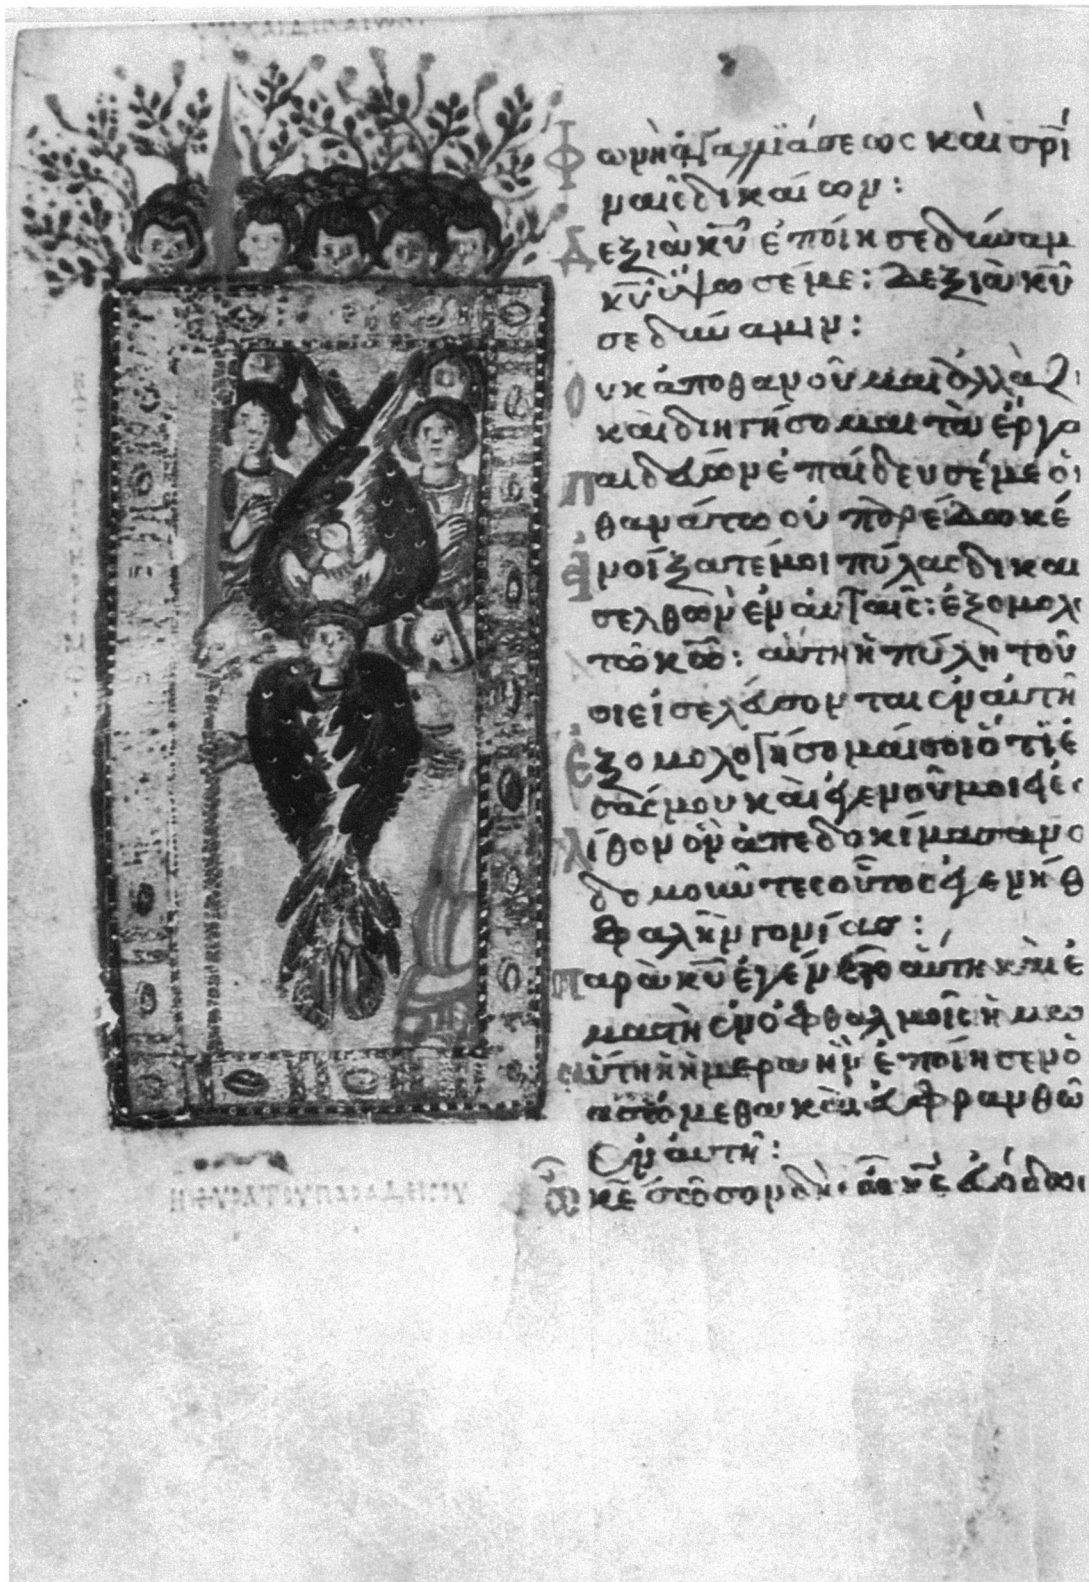 Φωνὴ ἀγαλλϊάσεως καὶ σρι
ναῖς δικαίων:
Δεξιὰ κῡ ἐποίησε δύναμ
κῡ ὕψωσέ με: Δεξιὰ κῡ
σε δύναμιν:
Ουκ ἀποθανοῦμαι ἀλλὰ ζ
καὶ διηγήσομαι τὰ ἔργα
Παιδεύων ἐπαίδευσέ με ὁ
θανάτω οὐ παρέδωκέ
Ἀνοίξατέ μοι πύλας δικαι
σελθὼν ἐν αὐταῖς: ἐξομολ
τῶ κω: αὕτη ἡ πύλη τοῦ
οι εἰσελεύσονται ἐν αὐτῆ
Ἐξομολογήσομαί σοι ὅτι ἐ
σάς μου καὶ ἐγένου μοι εἰς
Λίθον ὃν ἀπεδοκίμασαν ο
δομοῦντες οὗτος ἐγενήθ
φαλὴν γονίας:
Παρὰ κῡ ἐγένετο αὕτη καὶ ἔ
μαστὴ ἐν ὀφθαλμοῖς ἡμω
Αὕτη ἡ ἡμέρα ἣν ἐποίησεν ὁ
ασόμεθα καὶ εὐφρανθῶ
ἐν αὐτῆ:
Ὦ κε σῶσον δὴ: ὦ κε εὐόδω